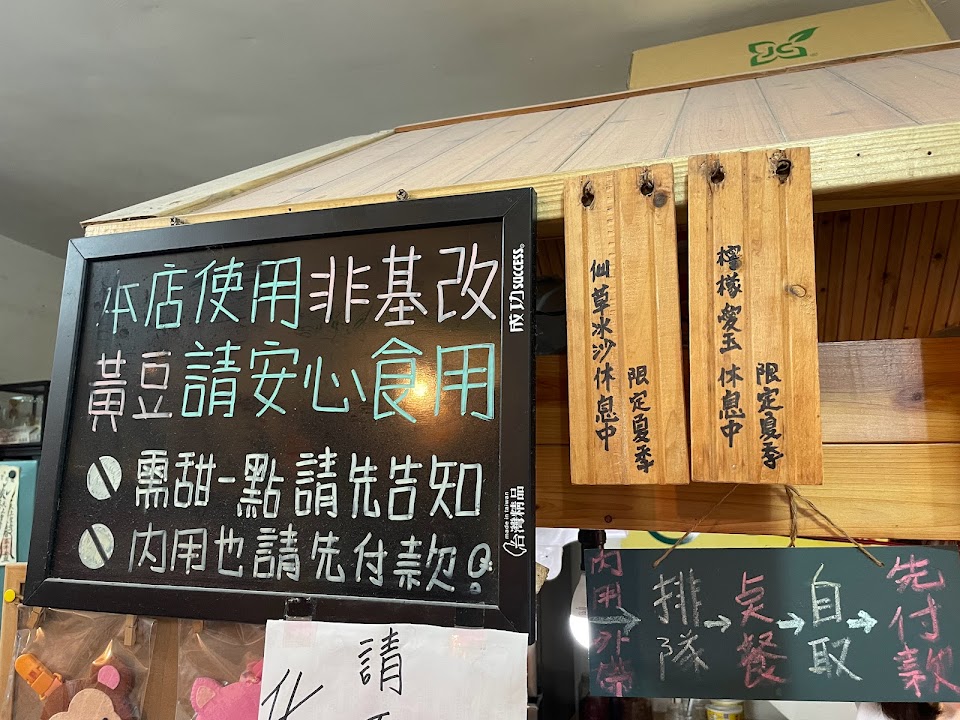 本店使用非基改
黃豆請安心食用
需甜一點請先告知
內用也請先付款
成功SUCCESS®
made in taiwan
台灣精品
仙草冰沙休息中
限定夏季
檸檬愛玉休息中
限定夏季
內用
外帶
→排隊→桌餐→自取→先付款
請
化